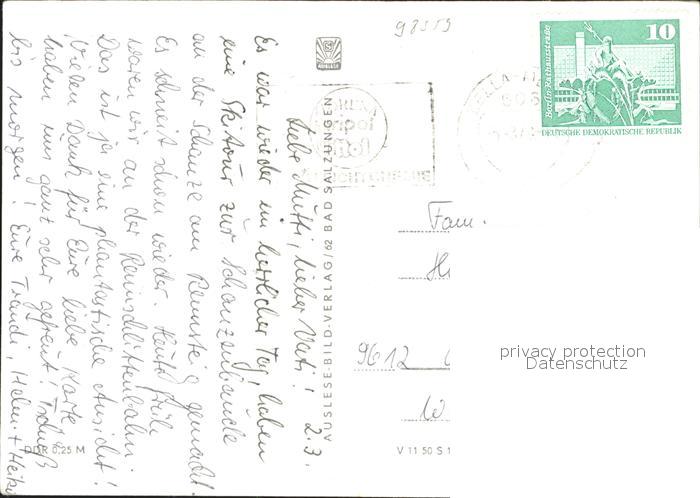 98559
Berlin, Rathausstraße
10
DEUTSCHE DEMOKRATISCHE REPUBLIK
Liebe Mutti, lieber Vati! 2.3.
Es war wieder ein herrlicher Tag, haben
eine Skitour zur Schanzenbaude
an der Schanze am Rennsteig gemacht.
Es schneit schon wieder. Heute früh
waren wir an der Rennschlittenbahn
Das ist ja eine phantastische Ansicht!
Vielen Dank für Eure liebe Karte,
haben uns ganz sehr gefreut! Tschüß
bis morgen! Eure Traudi, + Heike
AUSLESE-BILD-VERLAG/62 BAD SALZUNGEN
Fam.
H
9612
W
DDR 0,25 M
V 11 50 S 1
privacy protection
Datenschutz